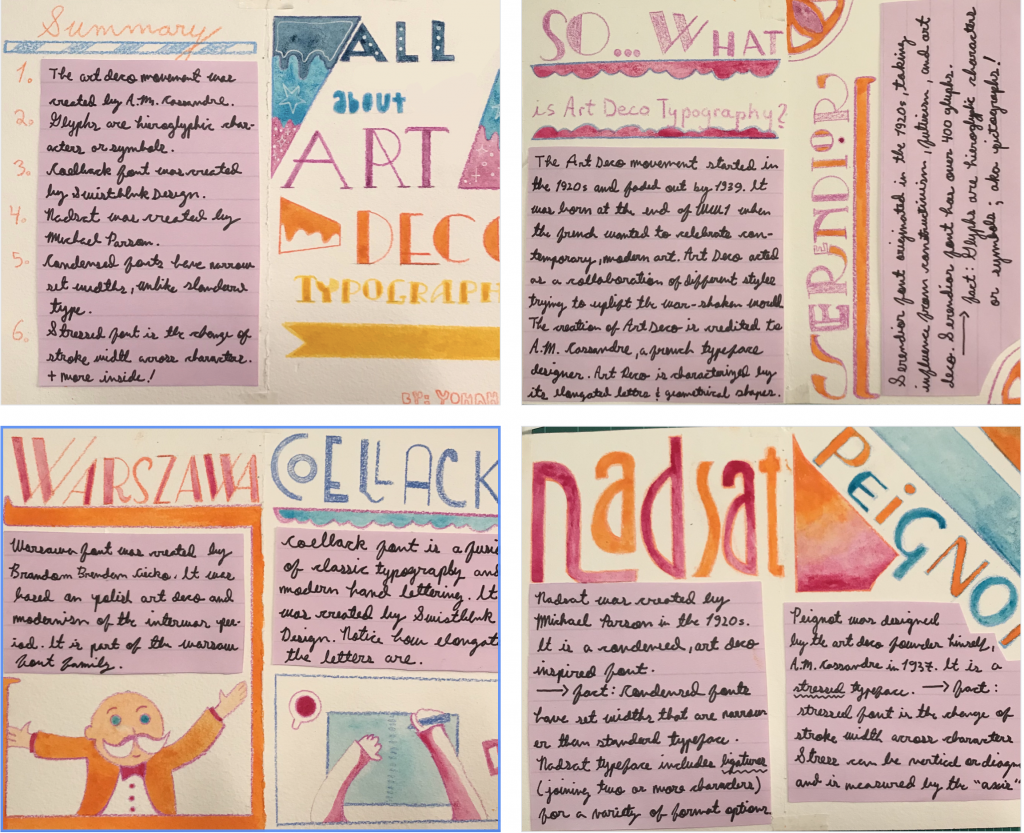 Summary
1. The art deco movement was
created by A.M. Cassandre.
2. Glyphs are hieroglyphic char-
acters or symbols.
3. Coellack font was created
by Swistblnk Design.
4. Nadsat was created by
Michael Parson.
5. Condensed fonts have narrow
set widths, unlike standard
type.
6. Stressed font is the change of
stroke width across characters.
+ more inside!
ALL
about
ART
DECO
TYPOGRAPH
BY: YOHAN
SO... WHAT
is Art Deco Typography?
The Art Deco movement started in
the 1920s and faded out by 1939. It
was born at the end of WW1 when
the french wanted to celebrate con-
temporary, modern art. Art Deco acted
as a collaboration of different styles
trying to uplift the war-shaken world.
The creation of Art Deco is credited to
A.M. Cassandre, a french typeface
designer. Art Deco is characterized by
its elongated letters & geometrical shapes.
SERENDIOR
Serendior font originated in the 1920s, taking
influence from constructivism, futurism, and art
deco. Serendior font has over 400 glyphs.
→ fact: Glyphs are hieroglyphic characters
or symbols; aka pictographs!
WARSZAWA
Warsawa font was created by
Brandom Brendern Cicko. It was
based on polish art deco and
modernism of the interwar per-
iod. It is part of the warsaw
font family.
COELLACK
Coellack font is a fusi
of classic typography and
modern hand lettering. It
was created by Swistblnk
Design. Notice how elongat
the letters are.
nadsat
Nadsat was created by
Michael Parson in the 1920s.
It is a condensed, art deco
inspired font.
→ fact: Condensed fonts
have set widths that are narrow
er than standard typeface.
Nadsat typeface includes ligatures
(joining two or more characters)
for a variety of format options
PEIGNO
Peignot was designed
by the art deco founder himself,
A.M. Cassandre in 1937. It is a
stressed typeface. → fact:
stressed font is the change of
stroke width across characters
Stress can be vertical or diagon
and is measured by the "axis"